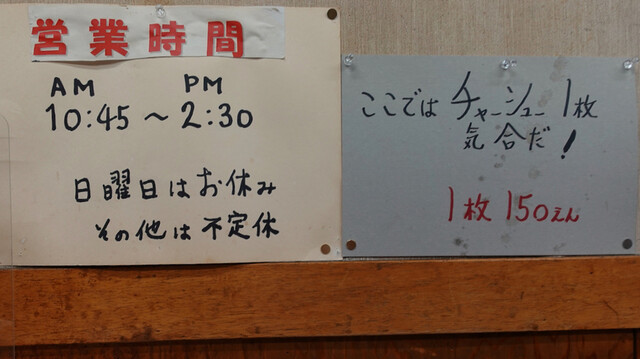 営業時間
AM PM
10:45～2:30
日曜日はお休み
その他は不定休
ここではチャーシュー1枚
気合だ!
1枚150えん